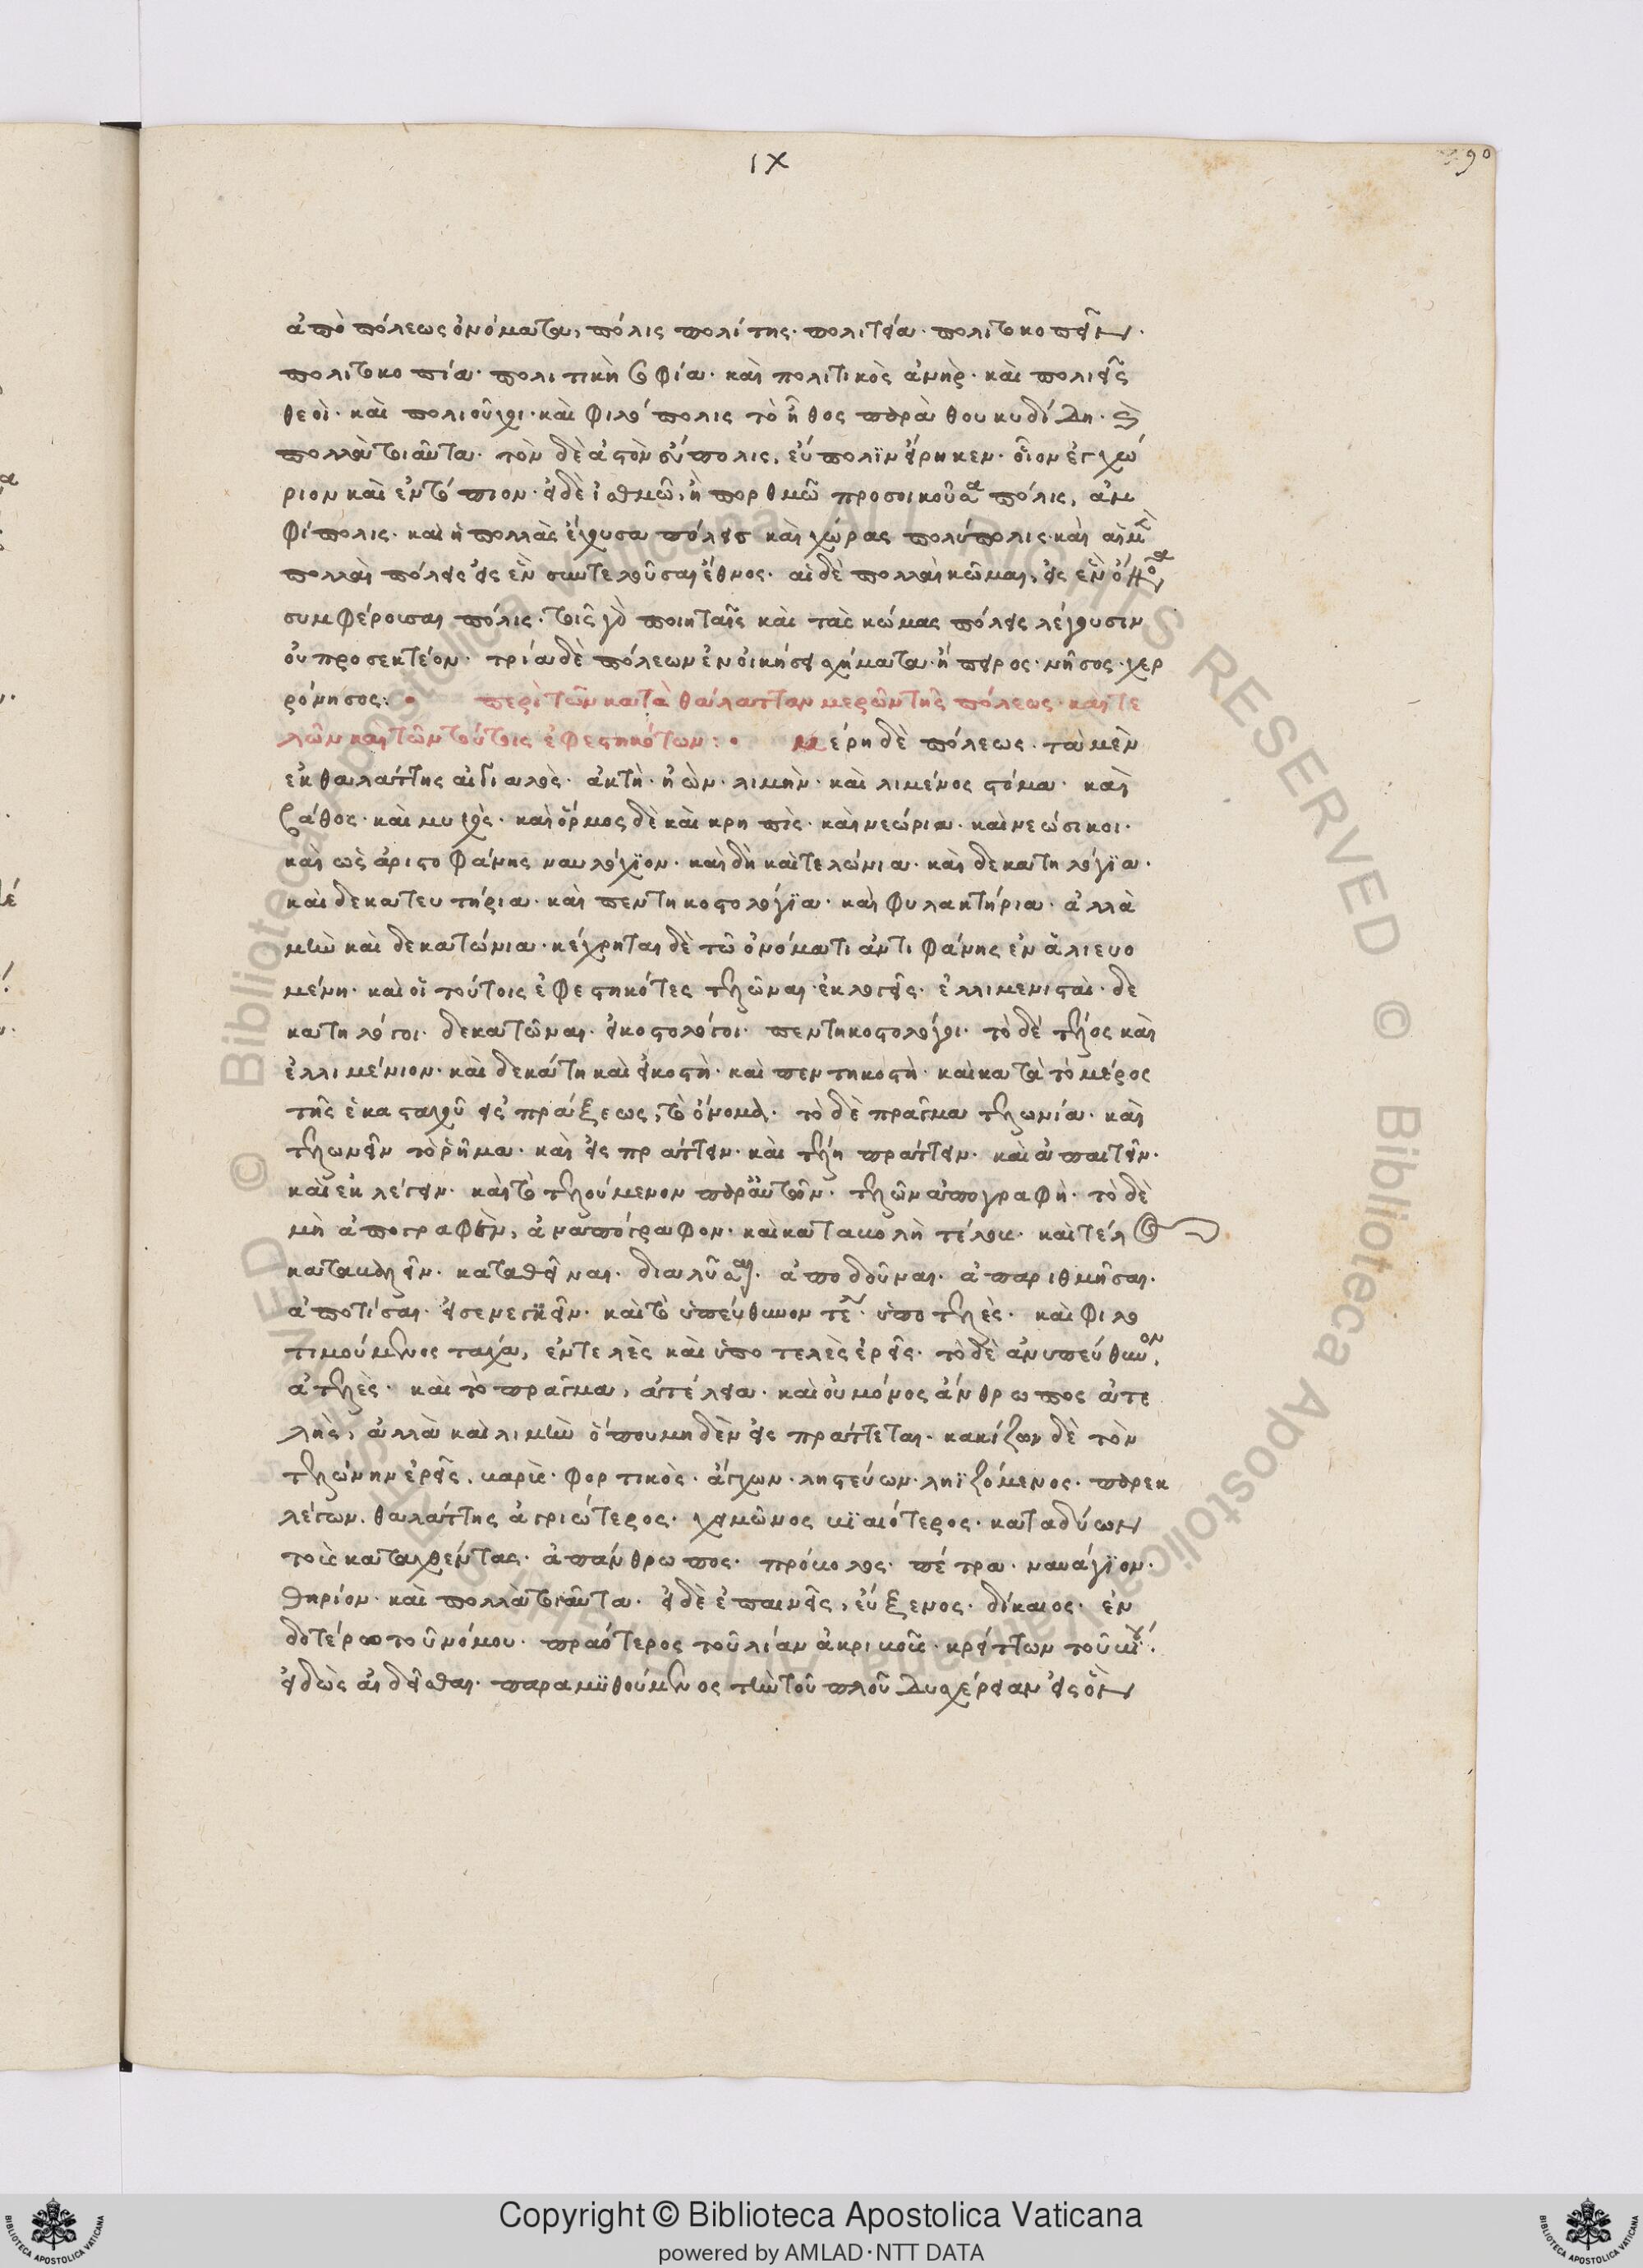 IX
90
ἀπὸ πόλεως ὀνόματα, πόλις πολίτης· πολιτεία· πολιτοκοπεῖν·
πολιτοκοπία· πολιτικὴ σοφία· καὶ πολιτικὸς ἀνὴρ· καὶ πολιεῖς
θεοὶ· καὶ πολιοῦχοι· καὶ φιλόπολις τὸ ἦθος παρὰ θουκυδίδη· καὶ
πολλὰ τοιαῦτα· τὸν δὲ ἀστὸν εὔπολις, εὐπολϊν εἴρηκεν· οἷον ἐγχώ
ριον καὶ ἐντόπιον· ἡ δὲ ἰσθμῶ, ἢ πορθμῶ προσοικοῦσα πόλις, ἀμ
φίπολις· καὶ ἡ πολλὰς ἔχουσα πόλεις καὶ χώρας πολύπολις· καὶ αἱ μὲν
πολλαὶ πόλεις εἰς ἓν συντελοῦσαι ἔθνος· αἱ δὲ πολλαὶ κῶμαι, εἰς ἓν ὄνομα
συμφέρουσαι πόλις· τοῖς γὰρ ποιηταῖς καὶ τὰς κώμας πόλεις λέγουσιν
οὐ προσεκτέον· τρία δὲ πόλεων ἐν οἰκήσει σχήματα· ἤπειρος· νῆσος· χερ
ρόνησος:
περὶ τῶν κατὰ θάλατταν μερῶν τῆς πόλεως· καὶ τε
λῶν καὶ τῶν τούτοις ἐφεστηκότων: μέρη δὲ πόλεως· τὰ μὲν
ἐκ θαλάττης αἰγιαλὸς· ἀκτὴ· ἠϊὼν· λιμὴν· καὶ λιμένος στόμα· καὶ
βάθος· καὶ μυχὸς· καὶ ὅρμος δὲ καὶ κρηπὶς· καὶ νεώρια· καὶ νεώσικοι·
καὶ ὡς ἀριστοφάνης ναυλόχϊον· καὶ δὴ καὶ τελώνια· καὶ δεκατηλόγϊα·
καὶ δεκατευτήρια· καὶ πεντηκοστολόγϊα· καὶ φυλακτήρια· ἀλλὰ
μὴν καὶ δεκατώνια· κέχρηται δὲ τῶ ὀνόματι ἀντιφάνης ἐν ἁλιευο
μένη· καὶ οἱ τούτοις ἐφεστηκότες τελῶναι· ἐκλογεῖς· ἐλλιμενισταὶ· δε
κατηλόγοι· δεκατῶναι· εἰκοστολόγοι· πεντηκοστολόγοι· τὸ δὲ τέλος καὶ
ἐλλιμένιον· καὶ δεκάτη καὶ εἰκοστὴ· καὶ πεντηκοστὴ· καὶ κατὰ τὸ μέρος
τῆς ἑκασταχοῦ εἰσπράξεως, τὸ ὄνομα· τὸ δὲ πρᾶγμα τελωνία· καὶ
τελωνεῖν τὸ ῥῆμα· καὶ εἰσπράττειν· καὶ τέλη πράττειν· καὶ ἀπαιτεῖν·
καὶ ἐκλέγειν· καὶ τὸ τελούμενον παρ' αὐτῶν· τελῶν ἀπογραφὴ· τὸ δὲ
μὴ ἀπογραφὲν, ἀναπόγραφον· καὶ καταβολὴ τέλους· καὶ τέλος
καταβαλεῖν· καταθεῖναι· διαλῦσαι· ἀποδοῦναι· ἀπαριθμῆσαι·
ἀποτίσαι· εἰσενεγκεῖν· καὶ τὸ ὑπεύθυνον τέλει· ὑποτελὲς· καὶ φιλο
τιμούμενος τάχα, ἐντελὲς καὶ ὑποτελὲς ἐρεῖς· τὸ δὲ ἀνυπεύθυνον,
ἀτελὲς· καὶ τὸ πρᾶγμα, ἀτέλεια· καὶ οὐ μόνος ἄνθρωπος ἀτε
λὴς, ἀλλὰ καὶ λιμὴν ὅπου μηδὲν εἰσπράττεται· κακίζων δὲ τὸν
τελώνην ἐρεῖς, βαρὺς· φορτικὸς· ἄγχων· λῃστεύων· ληϊζόμενος· παρεκ
λέγων· θαλάττης ἀγριώτερος· χειμῶνος βϊαιότερος· καταδύων
τοὺς καταχθέντας· ἀπάνθρωπος· πρόσβολος· πέτρα· ναυάγϊον·
θηρίον· καὶ πολλὰ τοιαῦτα· εἰ δὲ ἐπαινεῖς, εὔξενος· δίκαιος· ἐν
δοτέρω τοῦ νόμου· πραότερος τοῦ λίαν ἀκριβοῦς· κρείττων τοῦ
εἰδὼς αἰδεῖσθαι· παραμϋθούμενος τὴν τοῦ πλοῦ δυσχέρειαν εἰς ὃν